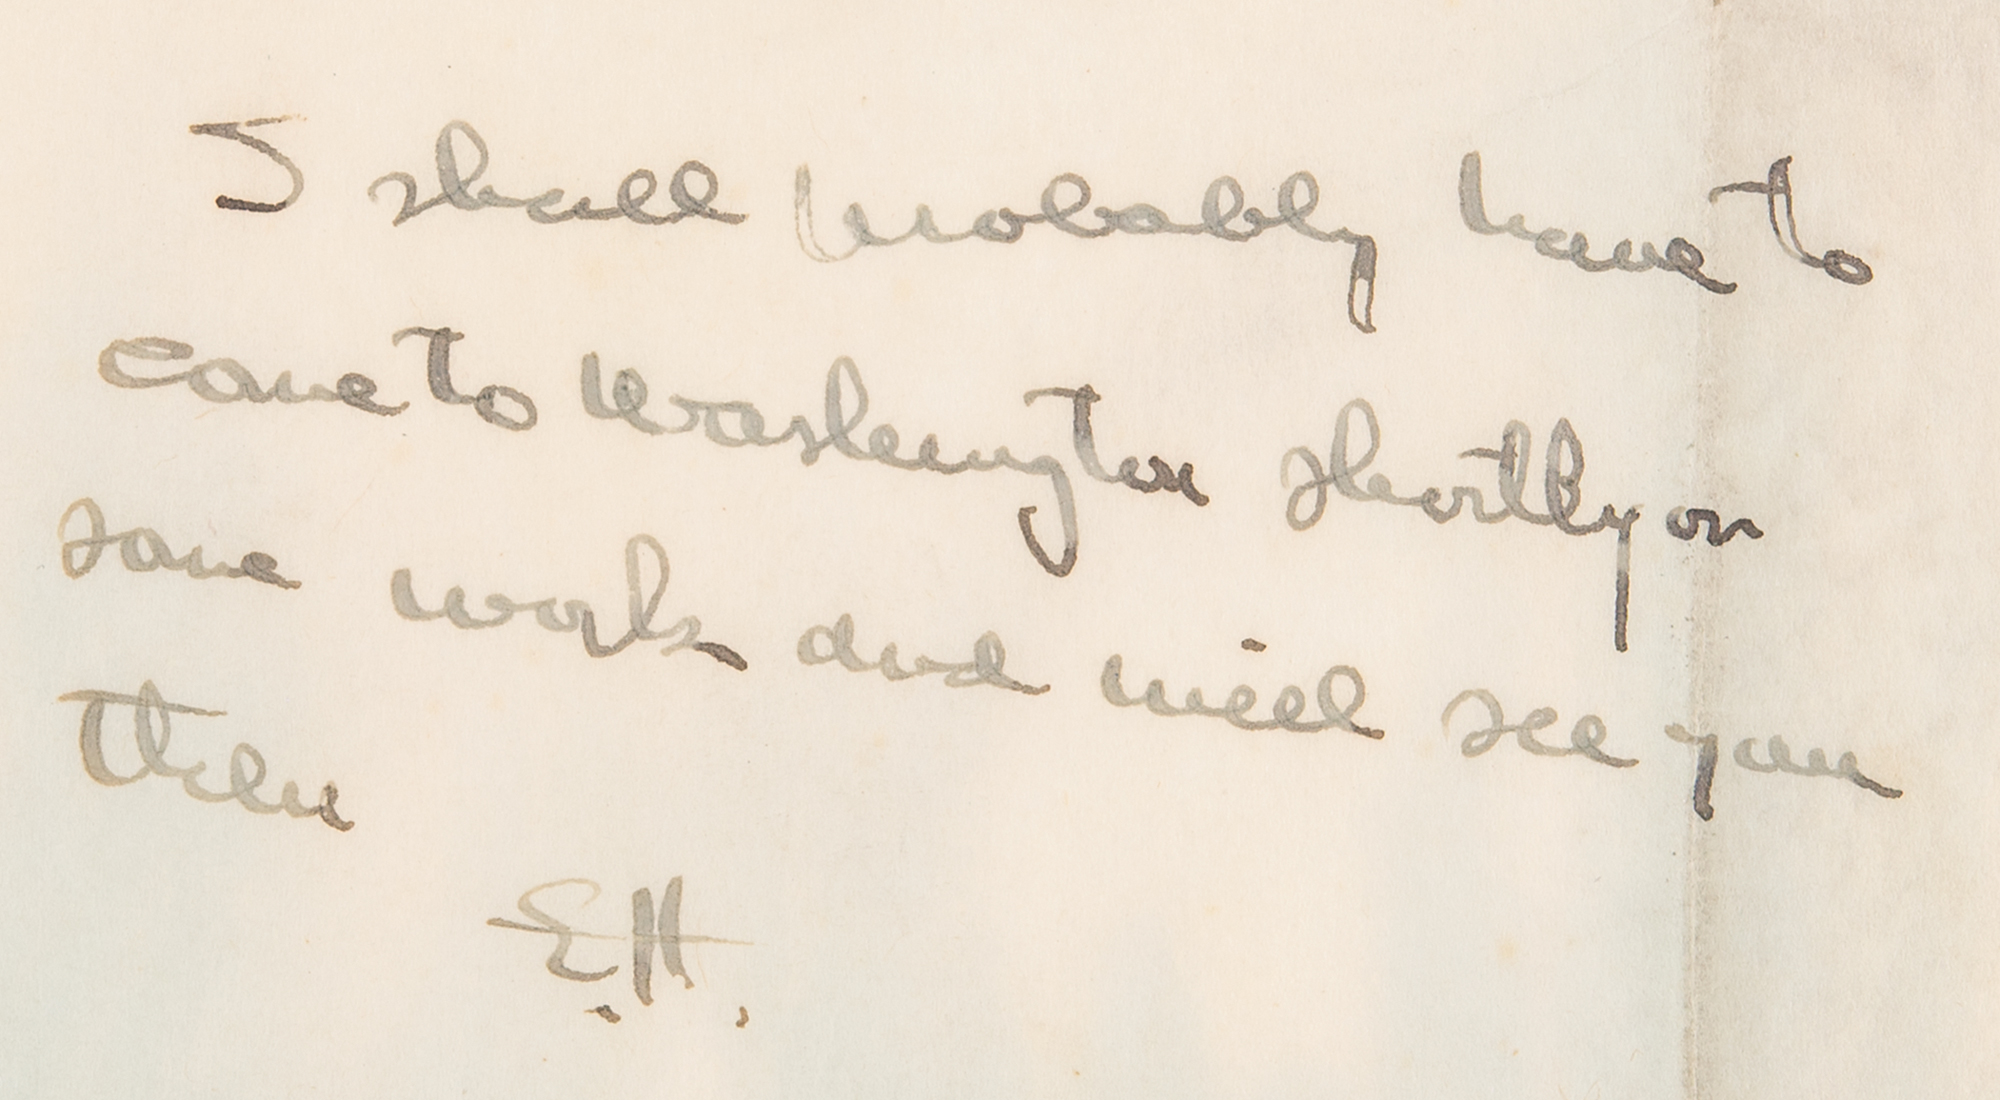 I shall probably have to
come to Washington shortly on
some work and will see you
then
E.H.